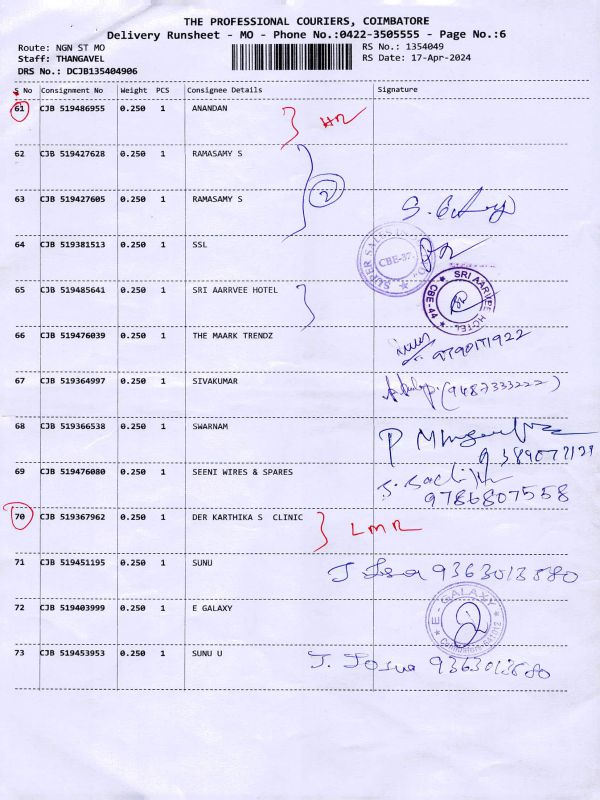 THE PROFESSIONAL COURIERS, COIMBATORE
Delivery Runsheet - MO - Phone No.:0422-3505555 - Page No.:6
Route: NGN ST MO
RS No.: 1354049
Staff: THANGAVEL
RS Date: 17-Apr-2024
DRS No.: DCJB135404906
S No Consignment No Weight PCS Consignee Details Signature
61 CJB 519486955 0.250 1 ANANDAN
62 CJB 519427628 0.250 1 RAMASAMY S
2
63 CJB 519427605 0.250 1 RAMASAMY S
64 CJB 519381513 0.250 1 SSL
CBE-37
65 CJB 519485641 0.250 1 SRI AARRVEE HOTEL
SRI AARVEE HOTEL CBE-44
66 CJB 519476039 0.250 1 THE MAARK TRENDZ
9790171922
67 CJB 519364997 0.250 1 SIVAKUMAR
(9487333222)
68 CJB 519366538 0.250 1 SWARNAM
69 CJB 519476080 0.250 1 SEENI WIRES & SPARES
9786807558
70 CJB 519367962 0.250 1 DER KARTHIKA S CLINIC
LMR
71 CJB 519451195 0.250 1 SUNU
9363013580
72 CJB 519403999 0.250 1 E GALAXY
E-GALAXY
73 CJB 519453953 0.250 1 SUNU U
J. Josua 9363013580